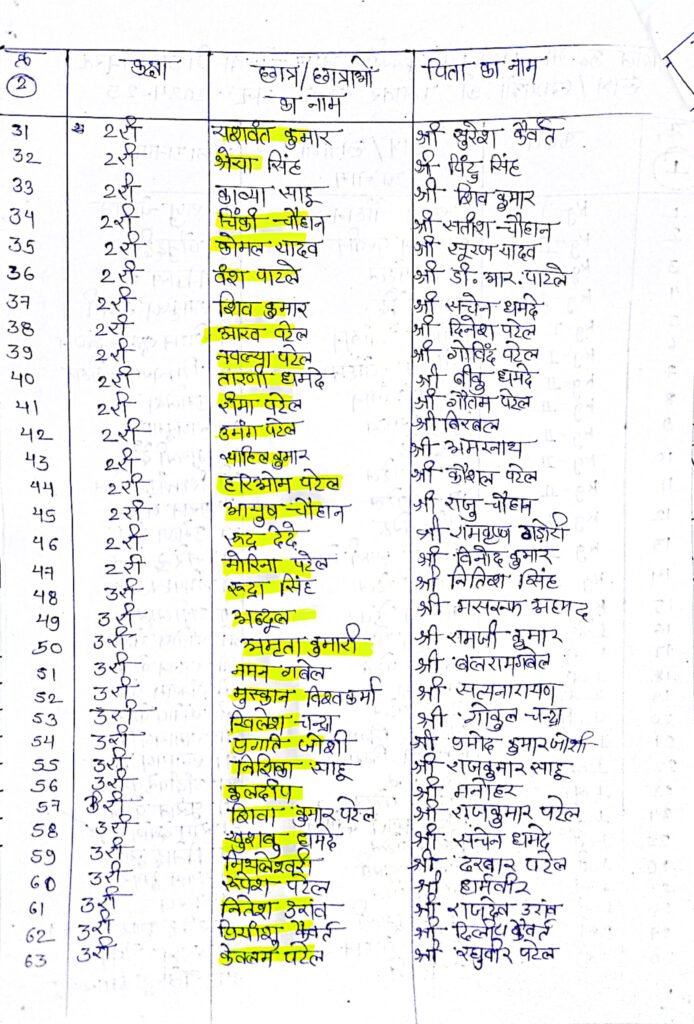 क्र कक्षा छात्र/छात्राओं का नाम पिता का नाम
2
31 2री यशवंत कुमार श्री सुरेश कैवर्त
32 2री श्रेया सिंह श्री पिंटु सिंह
33 2री काव्या साहू श्री शिव कुमार
34 2री चिंकी चौहान श्री सतीश चौहान
35 2री कोमल यादव श्री सूरज यादव
36 2री वंश पाटले श्री डी. आर. पाटले
37 2री शिव कुमार श्री सचेन धमदे
38 2री आरव पटेल श्री दिनेश पटेल
39 2री नवल्या पटेल श्री गोविंद पटेल
40 2री तारणी धमदे श्री बीकु धमदे
41 2री सीमा पटेल श्री गौतम पटेल
42 2री उमंग पटेल श्री बिरबल
43 2री साहिल कुमार श्री अमरनाथ
44 2री हरिओम पटेल श्री कौशल पटेल
45 2री आयुष चौहान श्री राजु चौहान
46 2री रूद्र देदे श्री रामकृष्ण
47 2री मोरिना पटेल श्री विनोद कुमार
48 3री रूद्रा सिंह श्री नितिश सिंह
49 3री अब्दूल श्री अहमद
50 3री अमृता कुमारी श्री रामजी कुमार
51 3री नमन गबेल श्री बलराम गबेल
52 3री मुस्कान विश्वकर्मा श्री सत्यनारायण
53 3री खिलेश चन्द्रा श्री गोकुल चन्द्रा
54 3री प्रगति जोशी श्री प्रमोद कुमार जोशी
55 3री निशिका साहू श्री राजकुमार साहू
56 3री कुलदीप श्री मनोहर
57 3री शिवा कुमार पटेल श्री राजकुमार पटेल
58 3री खुशबु धमदे श्री सचेन धमदे
59 3री मिथलेश्वरी श्री दरबार पटेल
60 3री रूपेश पटेल श्री धर्मवीर
61 3री नितेश उरांव श्री राजदेव उरांव
62 3री प्रियांशु कैवर्त श्री दिलीप कैवर्त
63 3री पटेल श्री रघुवीर पटेल